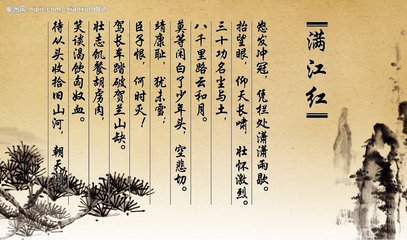 满江红
怒发冲冠,凭栏处潇潇雨歇。
抬望眼,仰天长啸,壮怀激烈。
三十功名尘与土,
八千里路云和月。
莫等闲白了少年头,空悲切。
靖康耻,犹未雪;
臣子恨,何时灭!
驾长车踏破贺兰山缺。
壮志饥餐胡虏肉,
笑谈渴饮匈奴血。
待从头收拾旧山河,朝天
昵图网